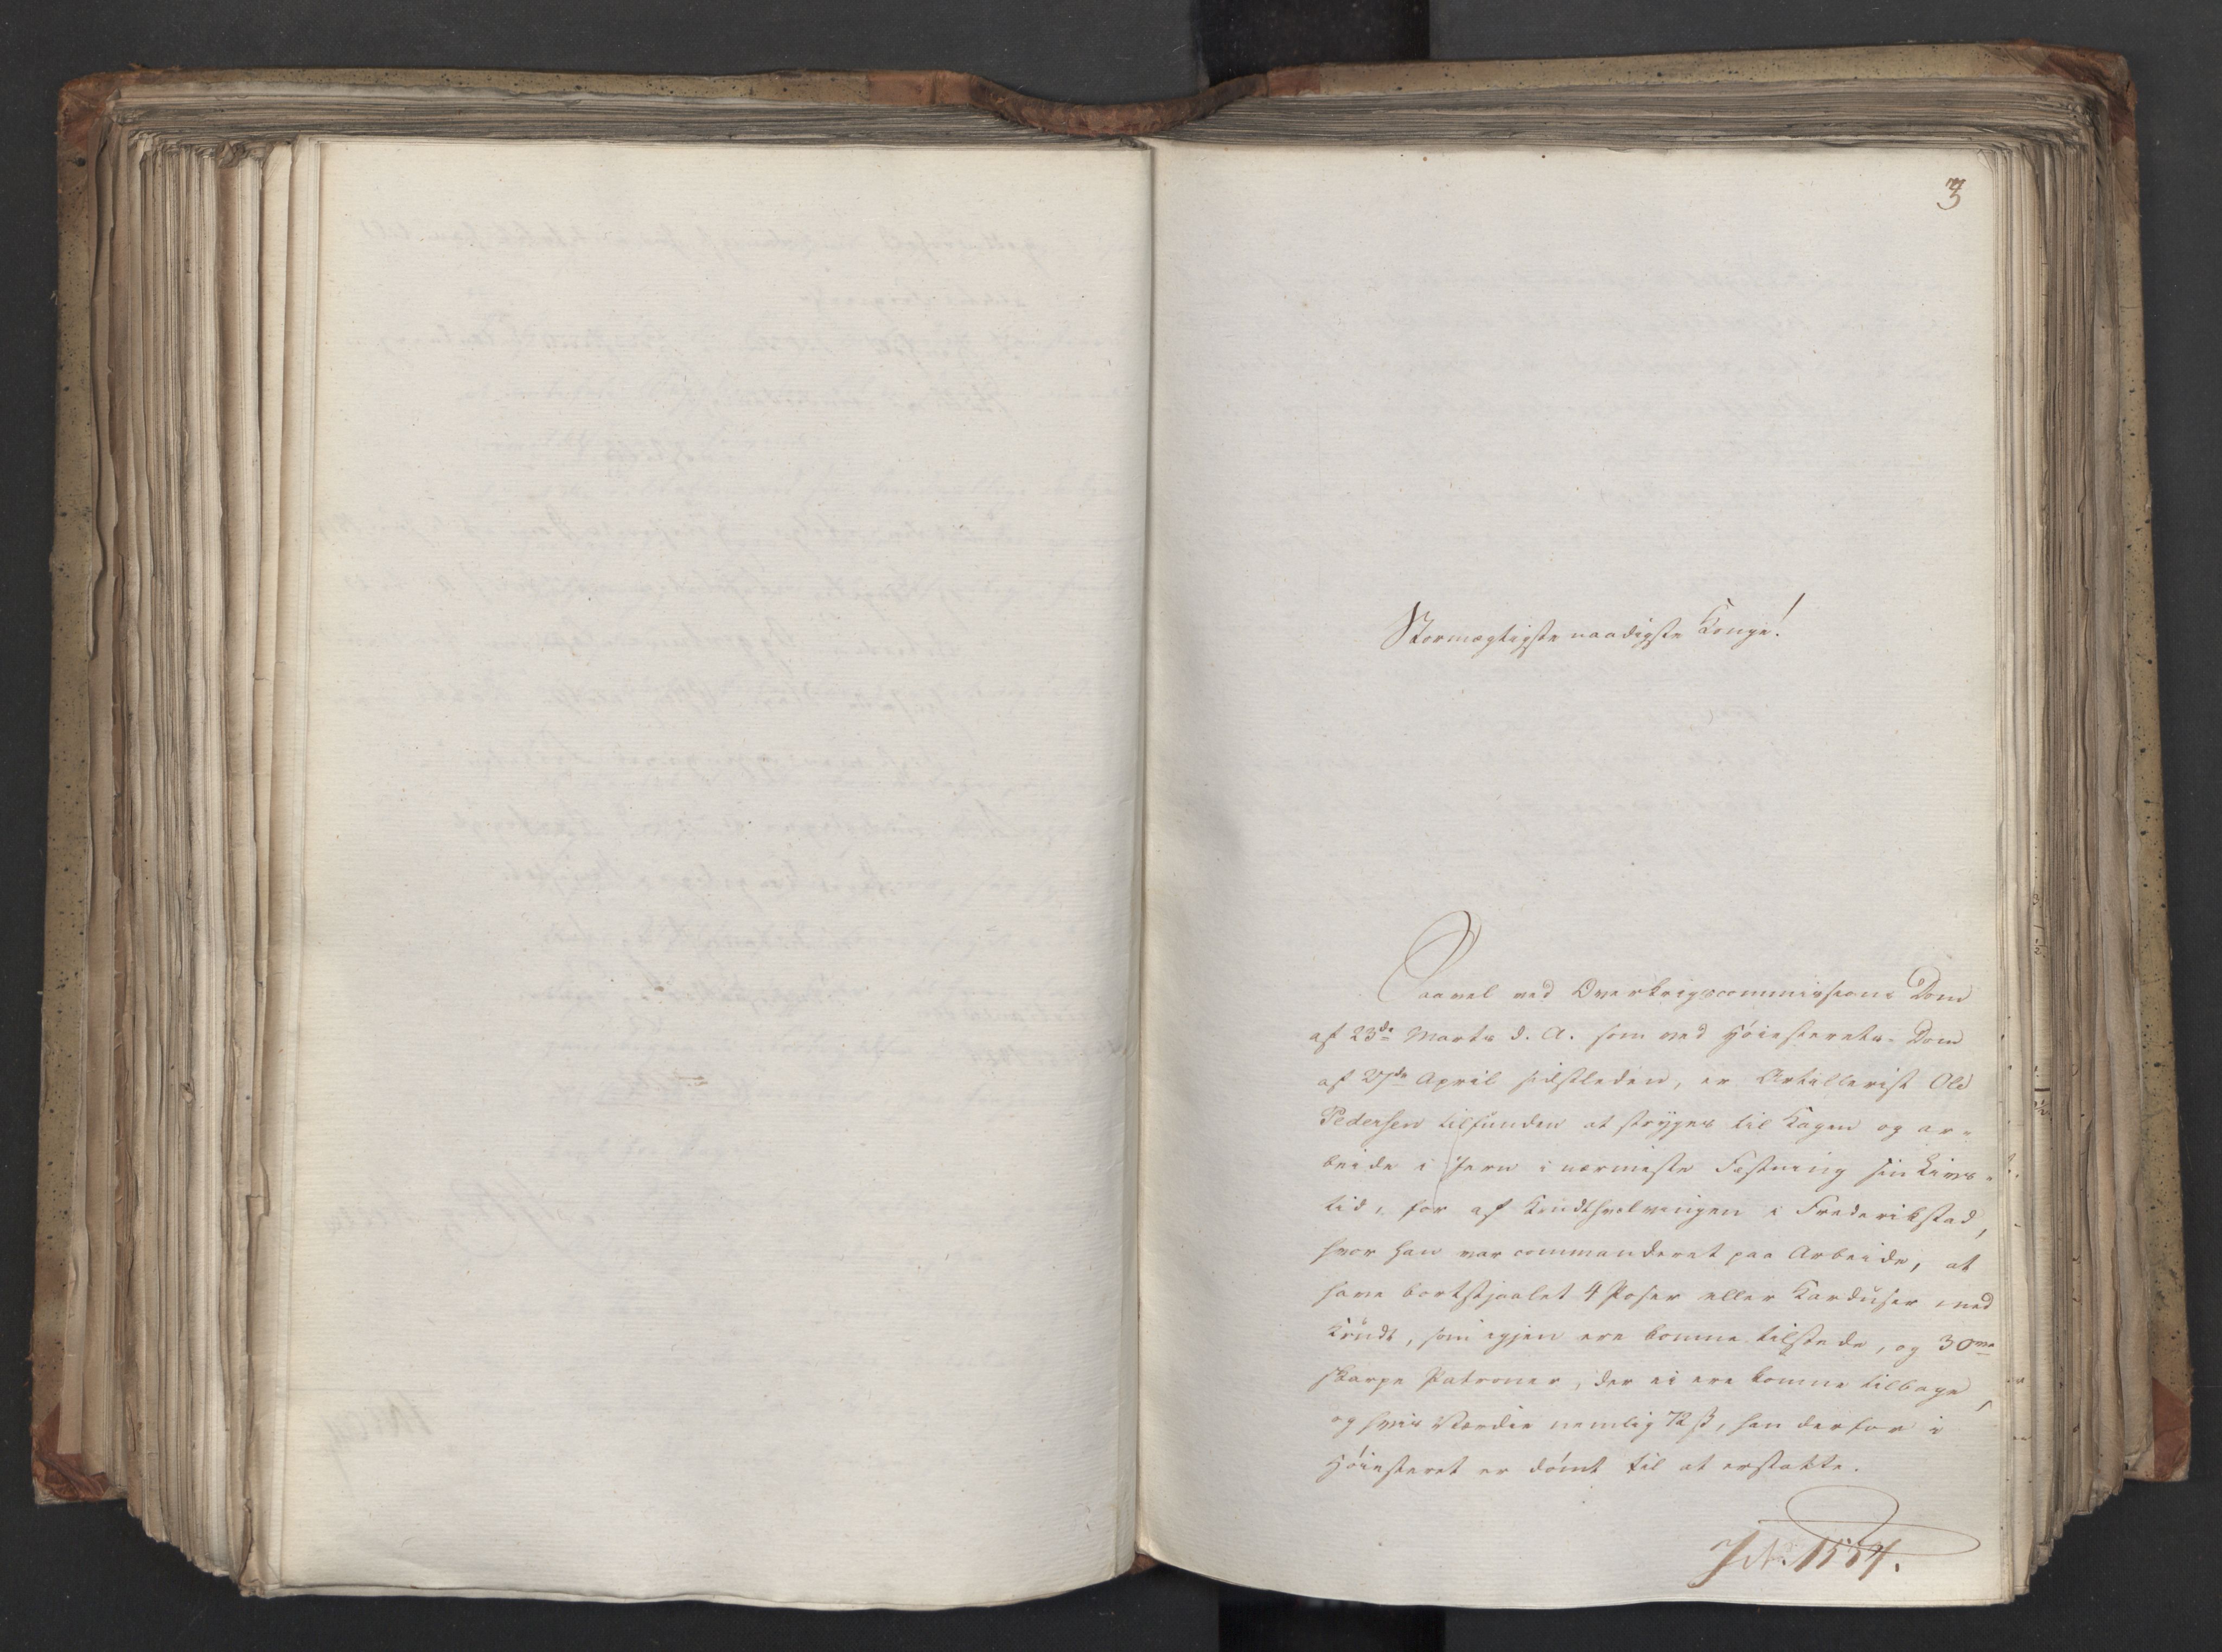 3
Stormægtigste naadigste Konge!
Saavel ved Overkrigscommissions Dom
af 23de Marts d. A. som ved Høiesterets-Dom
af 27de April sidstleden, er Artillerist Ole
Pedersen tilfunden at stryges til Kagen og ar-
beide i Jern i nærmeste Fæstning sin Livs-
tid, for af Krudthvelvingen i Frederikstad,
hvor han var commanderet paa Arbeide, at
have bortstjaalet 4 Poser eller Karduser med
Krudt, som igjen ere komne tilstede, og 30ve
skarpe Patroner, der ei ere komne tilbage,
og hvis Værdie nemlig 72 ß, han derfor i
Høiesteret er dømt til at erstatte.
J. N. 1554.